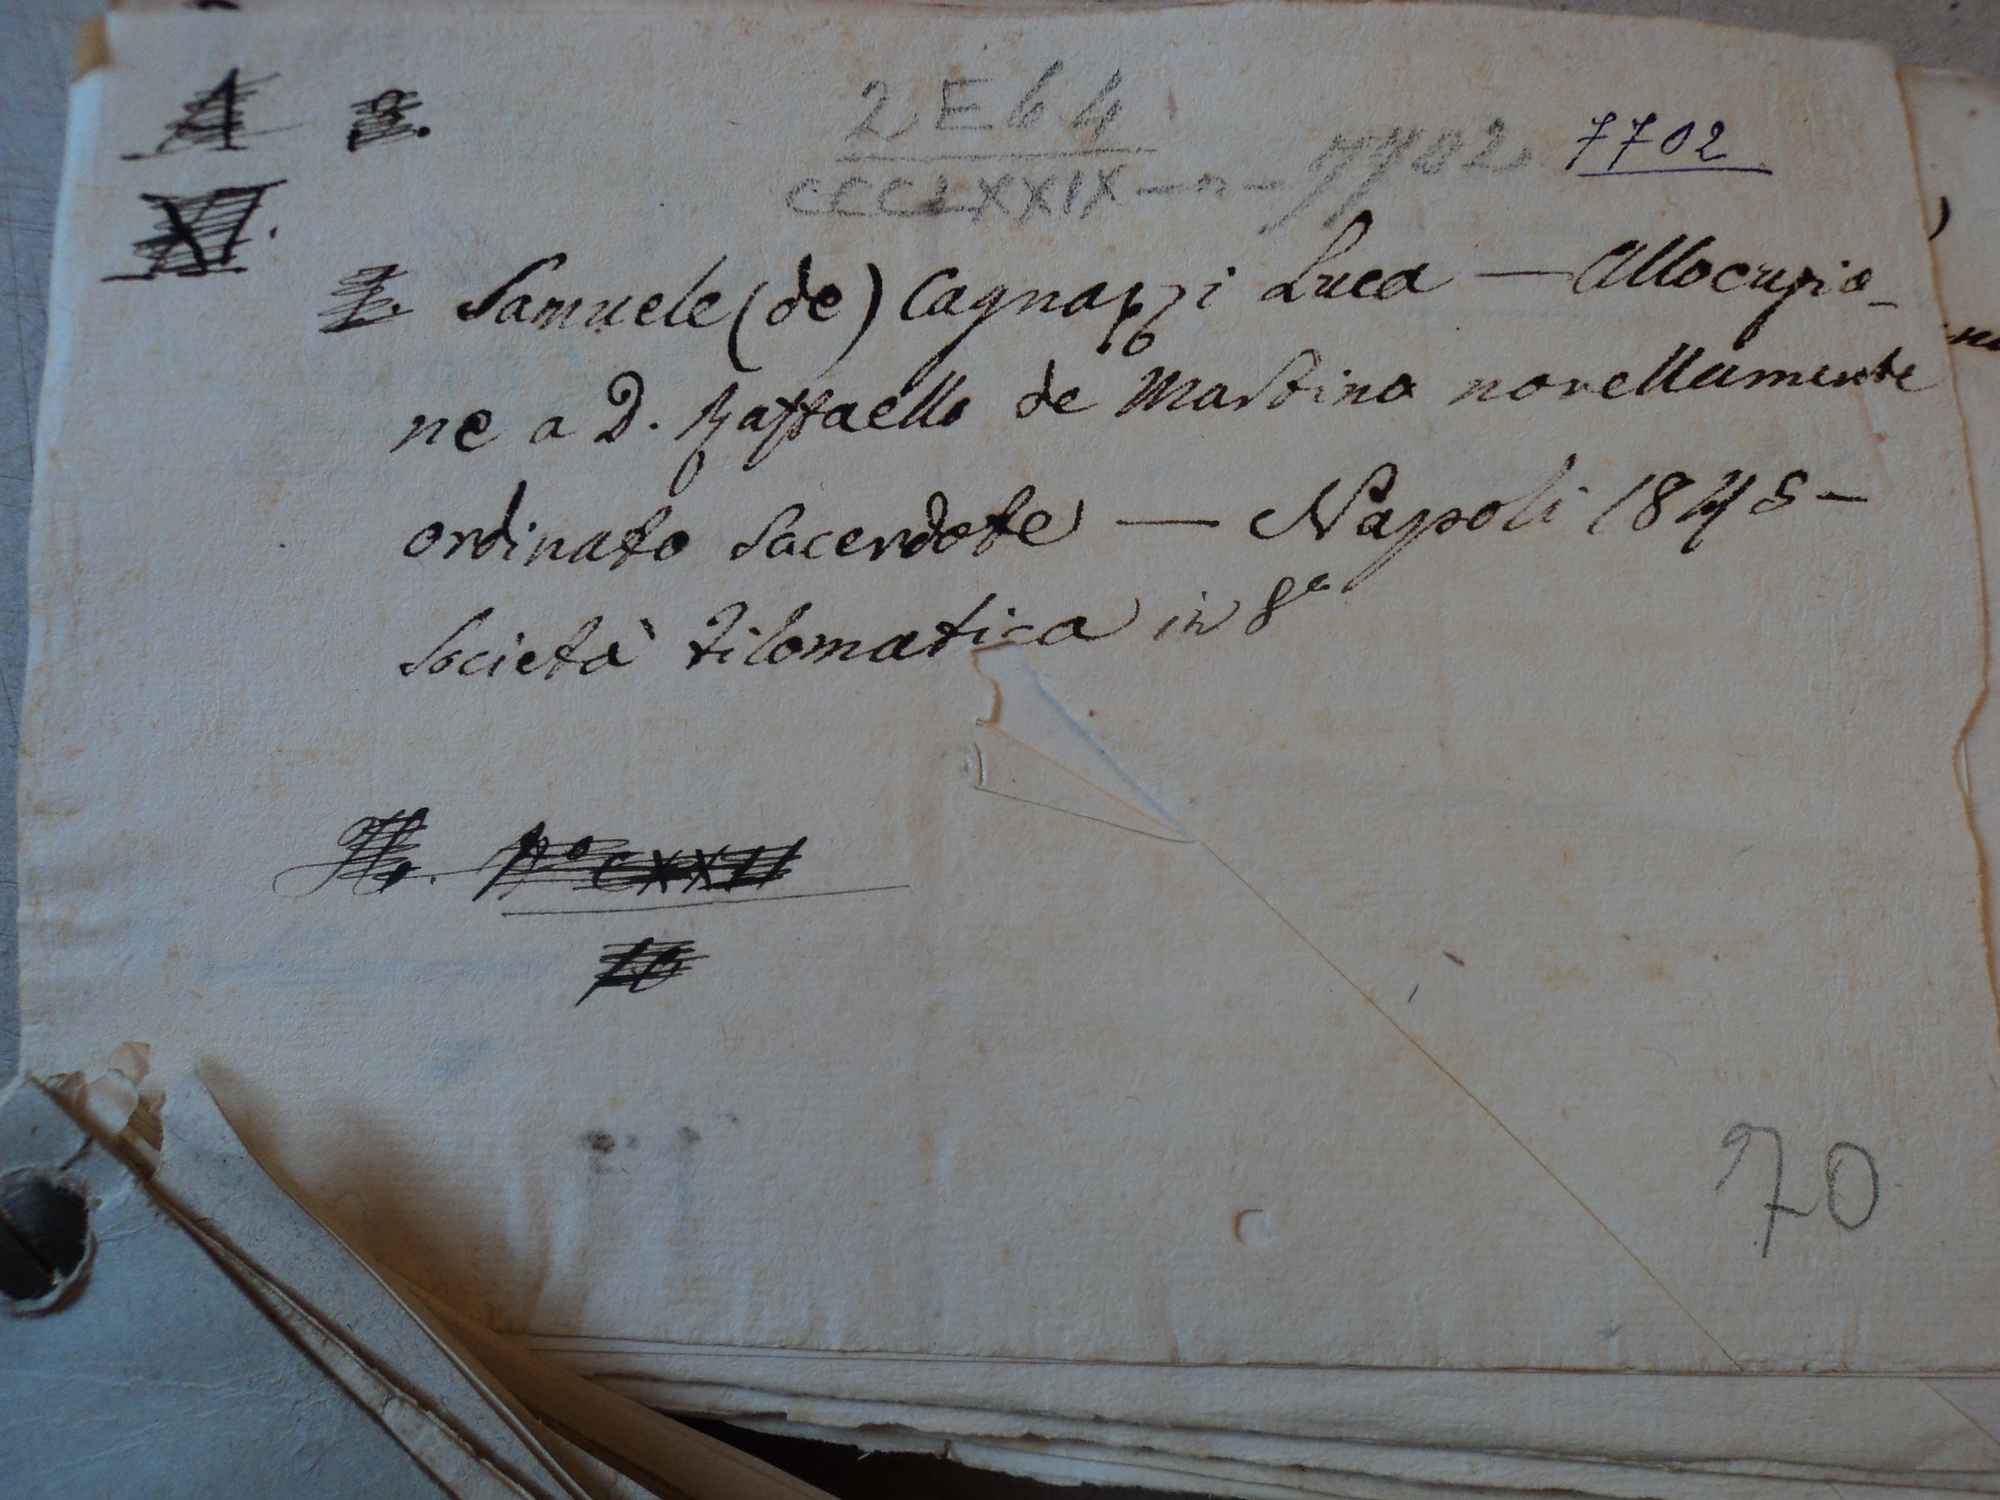 2 E 6 4
CCCLXXIX — n — 7702
7702
Samuele (de) Cagnazzi Luca — Allocuzio-
ne a D. Raffaello de Martino novellamente
ordinato Sacerdote — Napoli 1845 —
Società Filomatica in 8°
N° CXXII
70